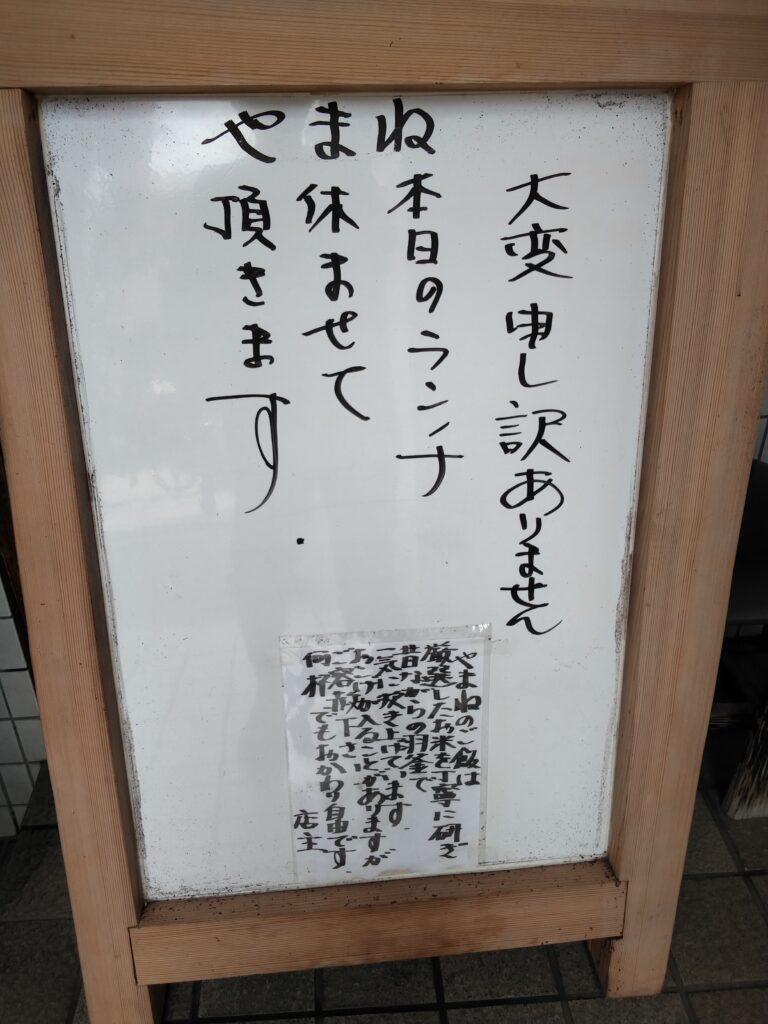 大変申し訳ありません
ね本日のランチ
ま休ませて
や頂きます
やまねのご飯は
厳選したお米を丁寧に研ぎ
昔ながらの羽釜で
一気に炊き上げています
おこげが入ることがありますが
ご容赦下さい
何杯でもおかわり自由です
店主